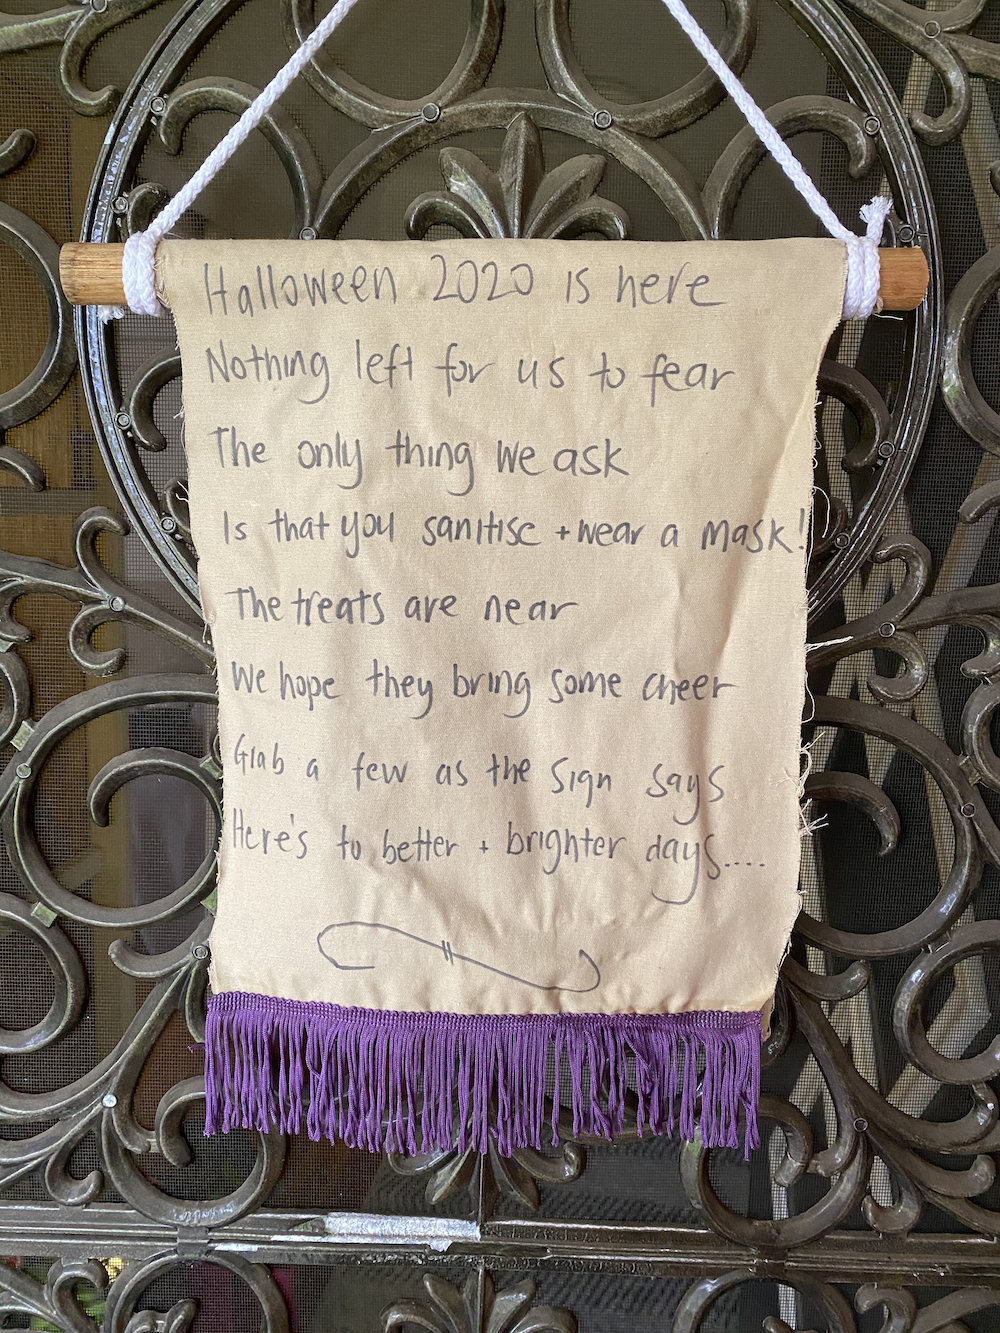 Halloween 2020 is here
Nothing left for us to fear
The only thing we ask
Is that you sanitise + wear a mask!
The treats are near
We hope they bring some cheer
Grab a few as the sign says
Here's to better + brighter days....